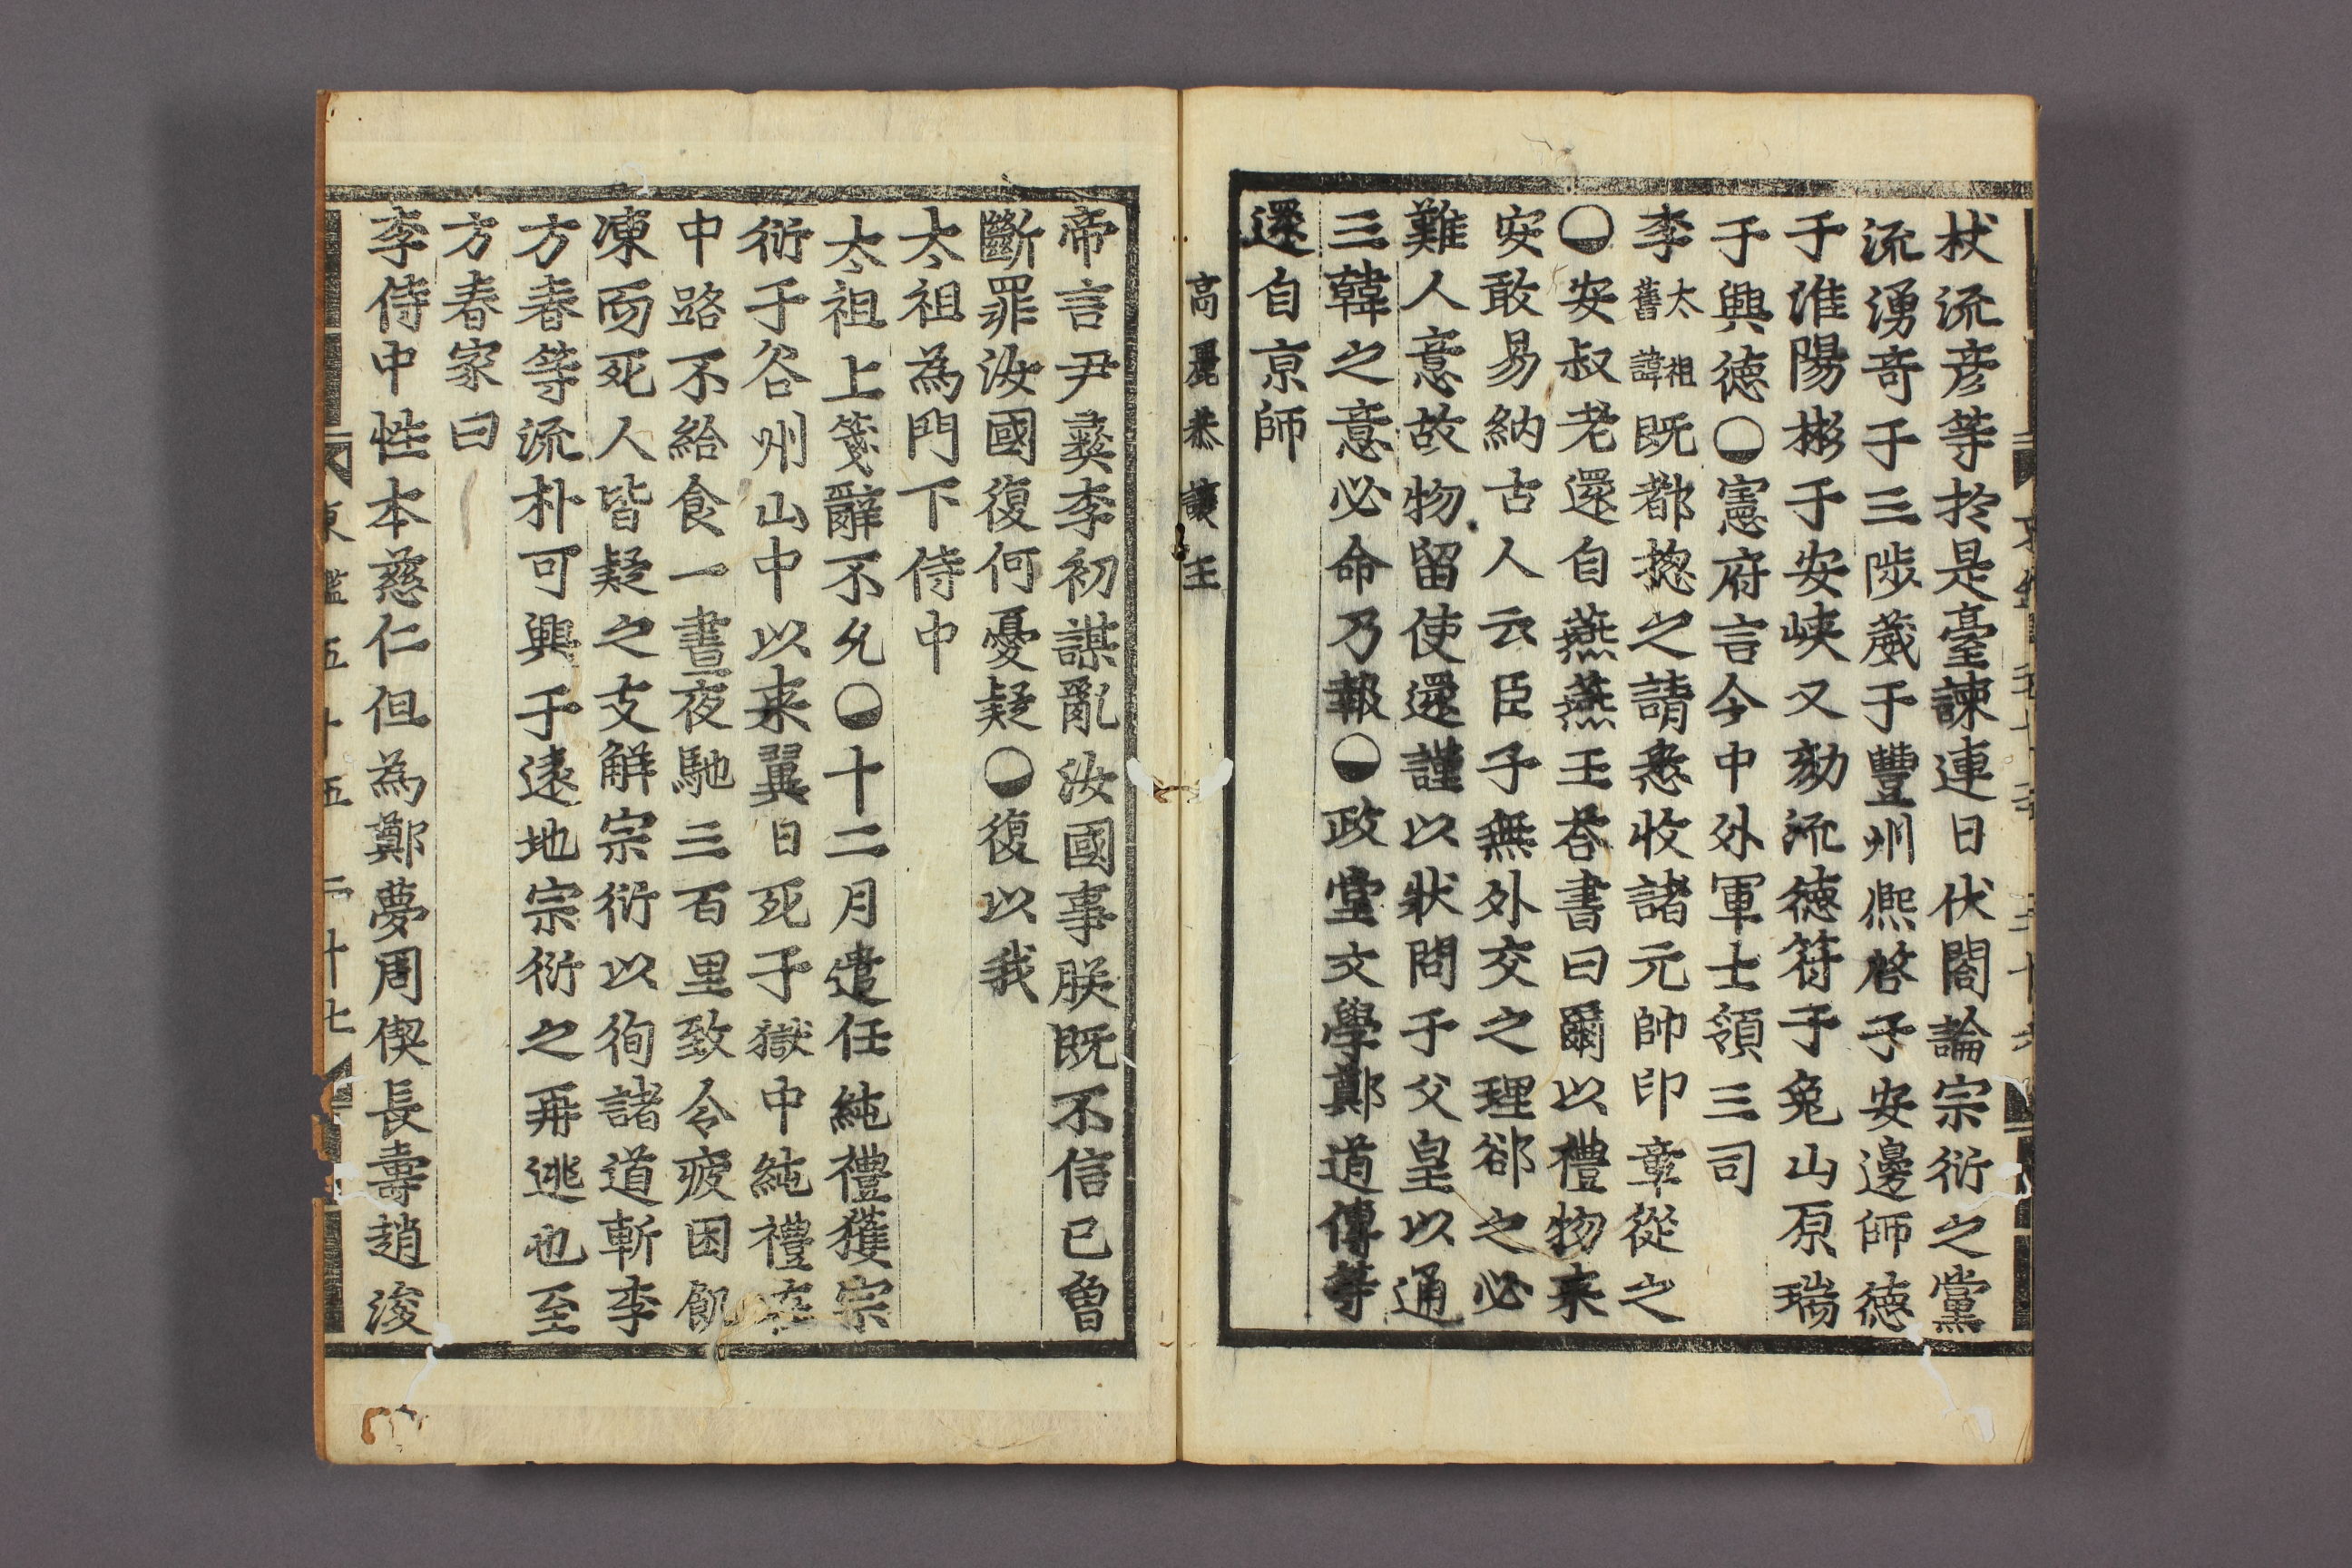 杖流彦等於是臺諫連日伏閤論宗衍之黨
流湧奇于三陟葳于豐州熈啓于安邊師德
于淮陽彬于安峽又劾流德符于兔山原瑞
于興德○憲府言今中外軍士領三司
李太祖舊諱既都揔之請悉收諸元帥印章從之
○安叔老還自燕燕王答書曰爾以禮物来
安敢易納古人云臣子無外交之理郤之必
難人意故物留使還謹以狀問于父皇以通
三韓之意必命乃報○政堂文學鄭道傳等
還自京師
高麗恭讓王
帝言尹彛李初謀亂汝國事朕既不信已曾
斷罪汝國復何憂疑○復以我
太祖為門下侍中
太祖上箋辭不允○十二月遣任純禮獲宗
衍于谷州山中以来翼日死于獄中純禮在
中路不給食一晝夜馳三百里致令疲困飢
凍而死人皆疑之支解宗衍以徇諸道斬李
方春等流朴可興于遠地宗衍之再逃也至
方春家曰
李侍中性本慈仁但為鄭夢周偰長壽趙浚
東鑑五十五 二十七